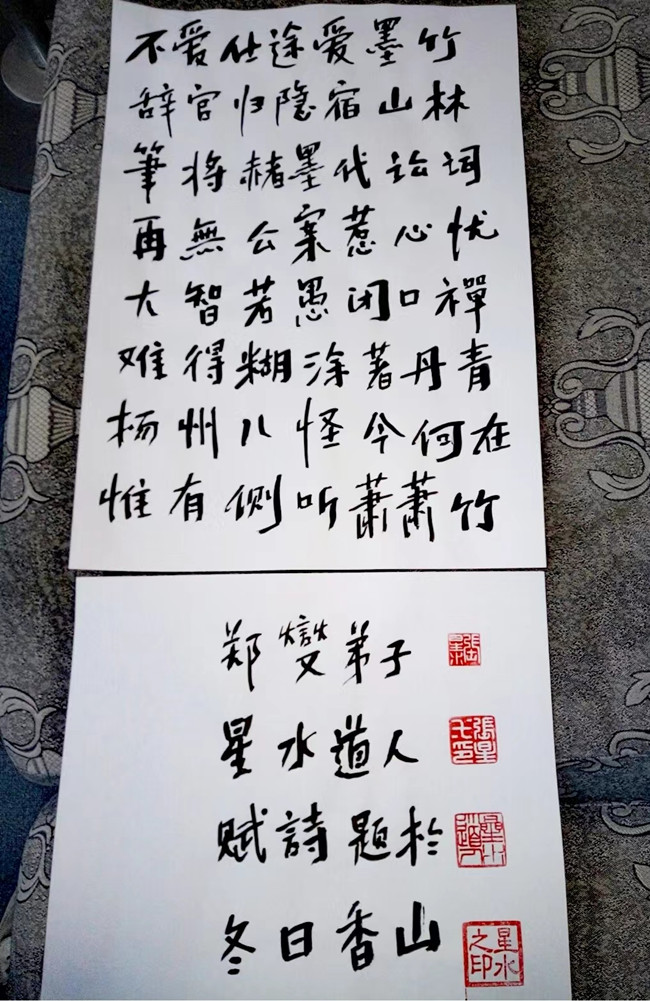 不爱仕途爱墨竹
辞官归隐宿山林
筆将赭墨代讼词
再無公案惹心忧
大智若愚闭口禪
难得糊涂著丹青
杨州八怪今何在
惟有侧听蕭蕭竹
郑燮弟子
星水道人
赋詩题於
冬日香山
星水之印